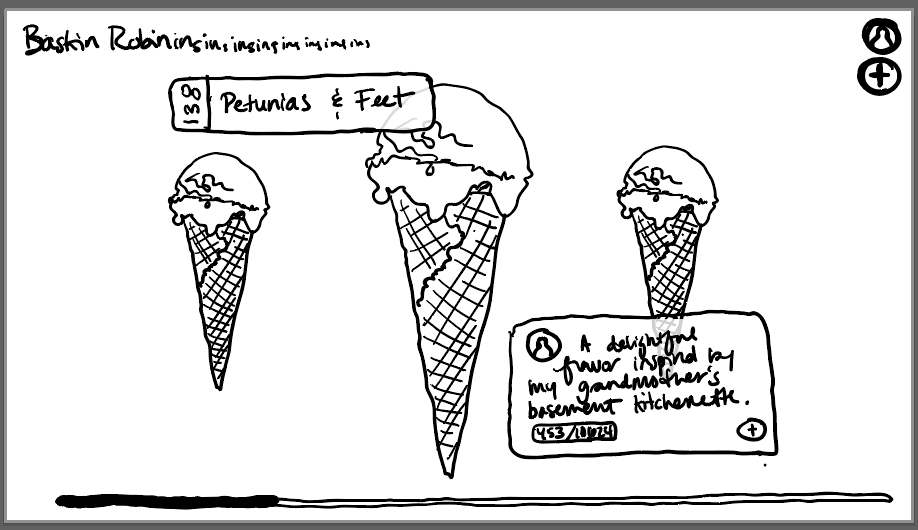 Baskin Robininsin. insingingingingins
138 Petunias & Feet
A delightful
flavor inspired by
my grandmother's
basement kitchenette.
+